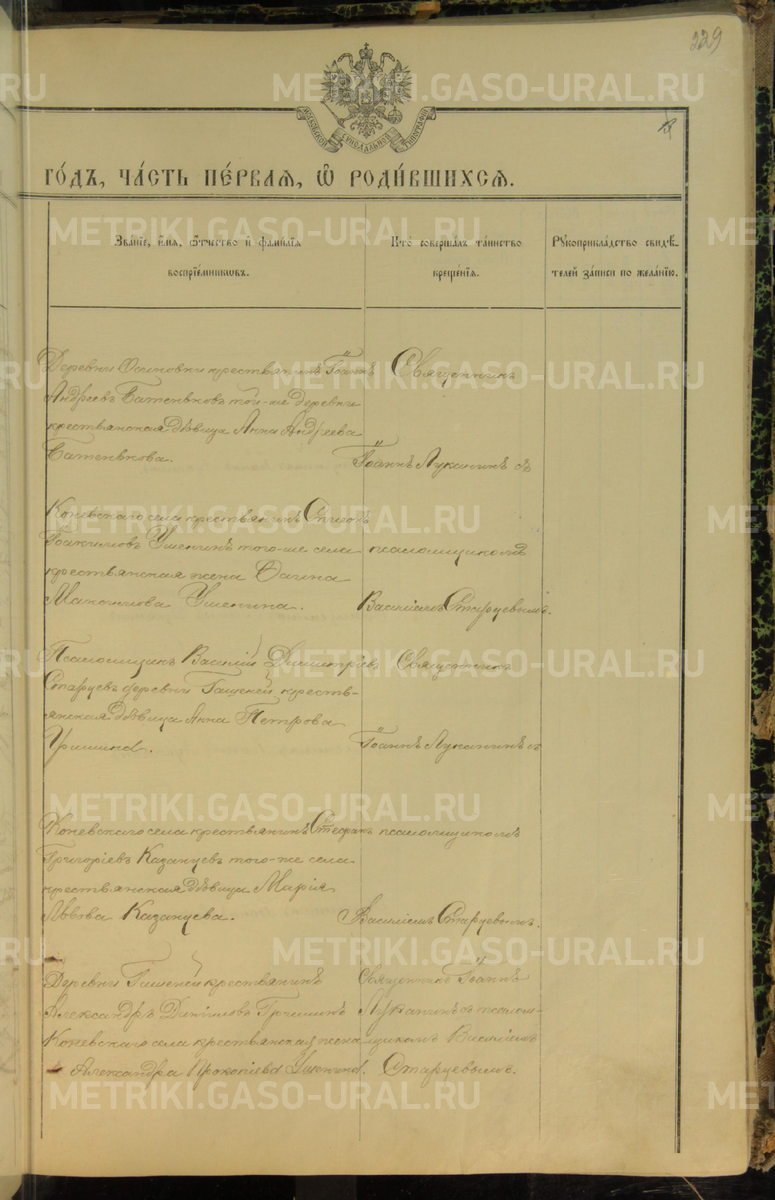 229
METRIKI.GASO-URAL.RU
МОСКОВСКОЙ СѴНОДАЛЬНОЙ ТИПОГРАФІИ
ГО́ДЪ, ЧА́СТЬ ПЕ́РВАѦ, Ѡ҆ РОДИ́ВШИХСѦ.
Зва́нїе, и҆́мѧ, ѻ҆́тчество и҆ фамилїѧ
воспрїе́мникѡвъ.
Кто̀ соверша́лъ та́инство
креще́нїѧ.
Рꙋкоприкла́дство свидѣ́-
телей за́писи по жела́нїю.
Деревни Осиновки крестьянинъ Іоаннъ
Андреевъ Батеньковъ той-же деревни
крестьянская дѣвица Анна Андреева
Батенькова.
Священникъ
Іоаннъ Луканинъ съ
Коневскаго села крестьянинъ
Іоакимовъ Ушенинъ того-же села
крестьянская жена
Ушенина.
псаломщикомъ
Василіемъ Старцевымъ.
Псаломщикъ Василій Димитріевъ
Старцевъ деревни крестъ-
янская дѣвица Анна Петрова
Гришина.
Священникъ
Іоаннъ Луканинъ съ
Коневскаго села крестьянинъ Стефанъ
Григоріевъ Казанцевъ того-же села
крестьянская дѣвица Марія
Львова Казанцева.
псаломщикомъ
Василіемъ Старцевымъ.
Деревни крестьянинъ
Александръ Даниловъ Гришинъ
Коневскаго села крестьянская жена
Александра Прокопіева Ушенина.
Священникъ Іоаннъ
Луканинъ съ псалом-
щикомъ Василіемъ
Старцевымъ.